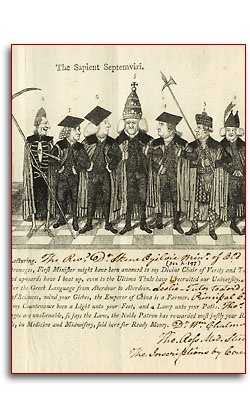 The Sapient Septemviri.
cturing. The Rev.d D.r Skene Ogilvie Min.r of Old
First Minister might have been annexed to my Divine Chair of Verity and T
d upwards have I beat up, even to the Ultima Thule have I recruited our University
or the Greek Language from Aberdeen to Aberdeen. Leslie Tutor to Lord
of Sciences, mind your Globes, the Emperor of China is a Farmer. Principal
my Countenance been a Light unto your Feet, and a Lamp unto your Paths. Tho
ges are unalienable, so says the Law, the Noble Patron has rewarded most justly your R
ts, in Medicine and Midwifery, sold here for Ready Money. D.r W.m Chalm
Tho.s Prof. Med.
The Inscriptions by